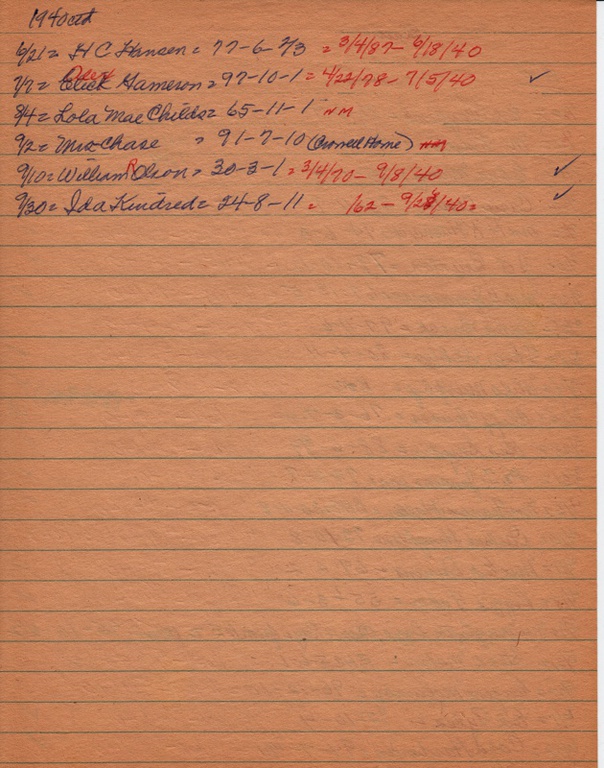 1940
6/21 = H C Hansen = 77-6-2/3 = 3/4/87 - 6/18/40
7/7 = Elick Gameron = 97-10-1 = 4/22/78 - 7/5/40 ✓
8/4 = Lola Mae Childs = 65-11-1 NM
9/2 = Mrs Chase = 91-7-10 (Crowell Home) NM
9/10 = William R Olson = 30-3-1 = 3/4/70 - 9/8/40 ✓
9/30 = Ida Kindred = 24-8-11 = /62 - 9/28/40 = ✓